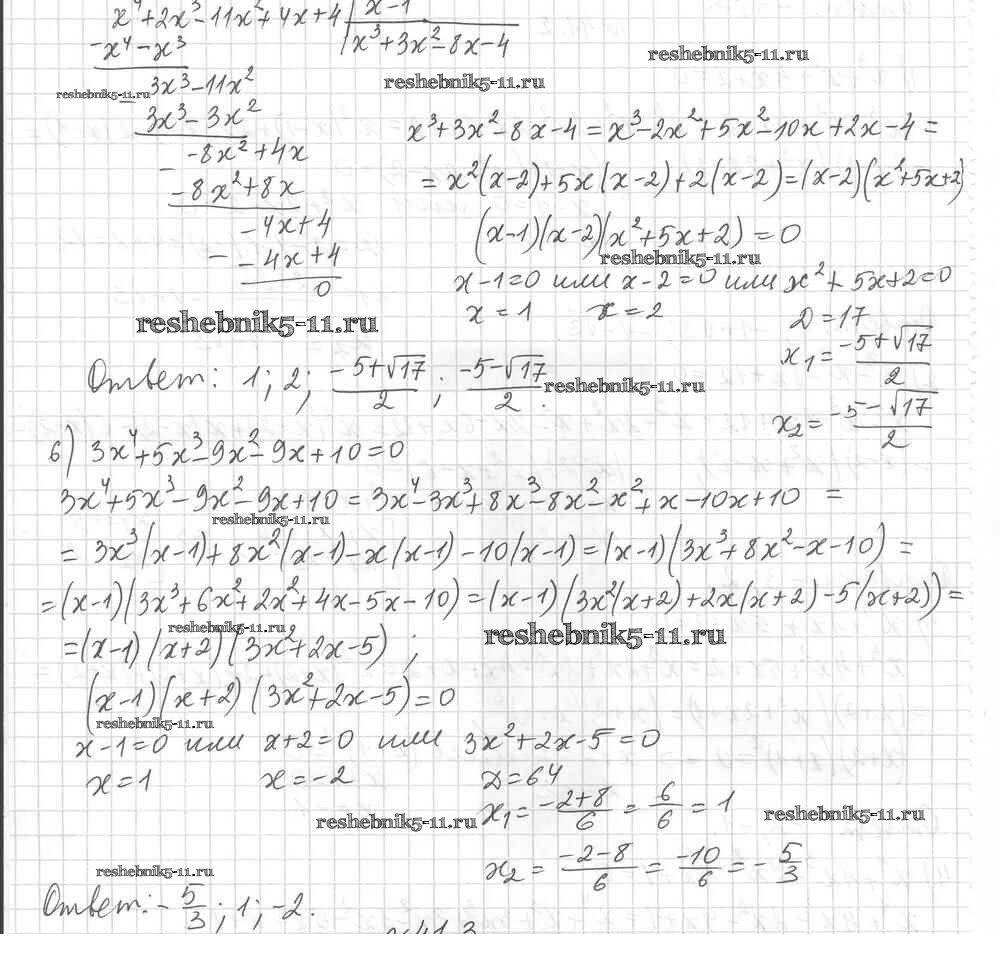 x⁴+2x³-11x²+4x+4 | x-1
-x⁴-x³ | x³+3x²-8x-4
reshebnik5-11.ru
reshebnik5-11.ru
3x³-11x²
reshebnik5-11.ru
- 3x³-3x²
x³+3x²-8x-4=x³-2x²+5x²-10x+2x-4=
-8x²+4x
- -8x²+8x
=x²(x-2)+5x(x-2)+2(x-2)=(x-2)(x²+5x+2)
-4x+4
(x-1)(x-2)(x²+5x+2)=0
reshebnik5-11.ru
- -4x+4
0
x-1=0 или x-2=0 или x²+5x+2=0
x=1 x=2 D=17
reshebnik5-11.ru
x₁=(-5+√17)/2
Ответ: 1; 2; (-5+√17)/2; (-5-√17)/2.
reshebnik5-11.ru
x₂=(-5-√17)/2
б) 3x⁴+5x³-9x²-9x+10=0
3x⁴+5x³-9x²-9x+10=3x⁴-3x³+8x³-8x²-x²+x-10x+10=
reshebnik5-11.ru
=3x³(x-1)+8x²(x-1)-x(x-1)-10(x-1)=(x-1)(3x³+8x²-x-10)=
=(x-1)(3x³+6x²+2x²+4x-5x-10)=(x-1)(3x²(x+2)+2x(x+2)-5(x+2))=
reshebnik5-11.ru
reshebnik5-11.ru
=(x-1)(x+2)(3x²+2x-5);
(x-1)(x+2)(3x²+2x-5)=0
reshebnik5-11.ru
x-1=0 или x+2=0 или 3x²+2x-5=0
x=1 x=-2 D=64
x₁=(-2+8)/6=6/6=1
reshebnik5-11.ru
reshebnik5-11.ru
x₂=(-2-8)/6=-10/6=-5/3
reshebnik5-11.ru
Ответ: -5/3; 1; -2.